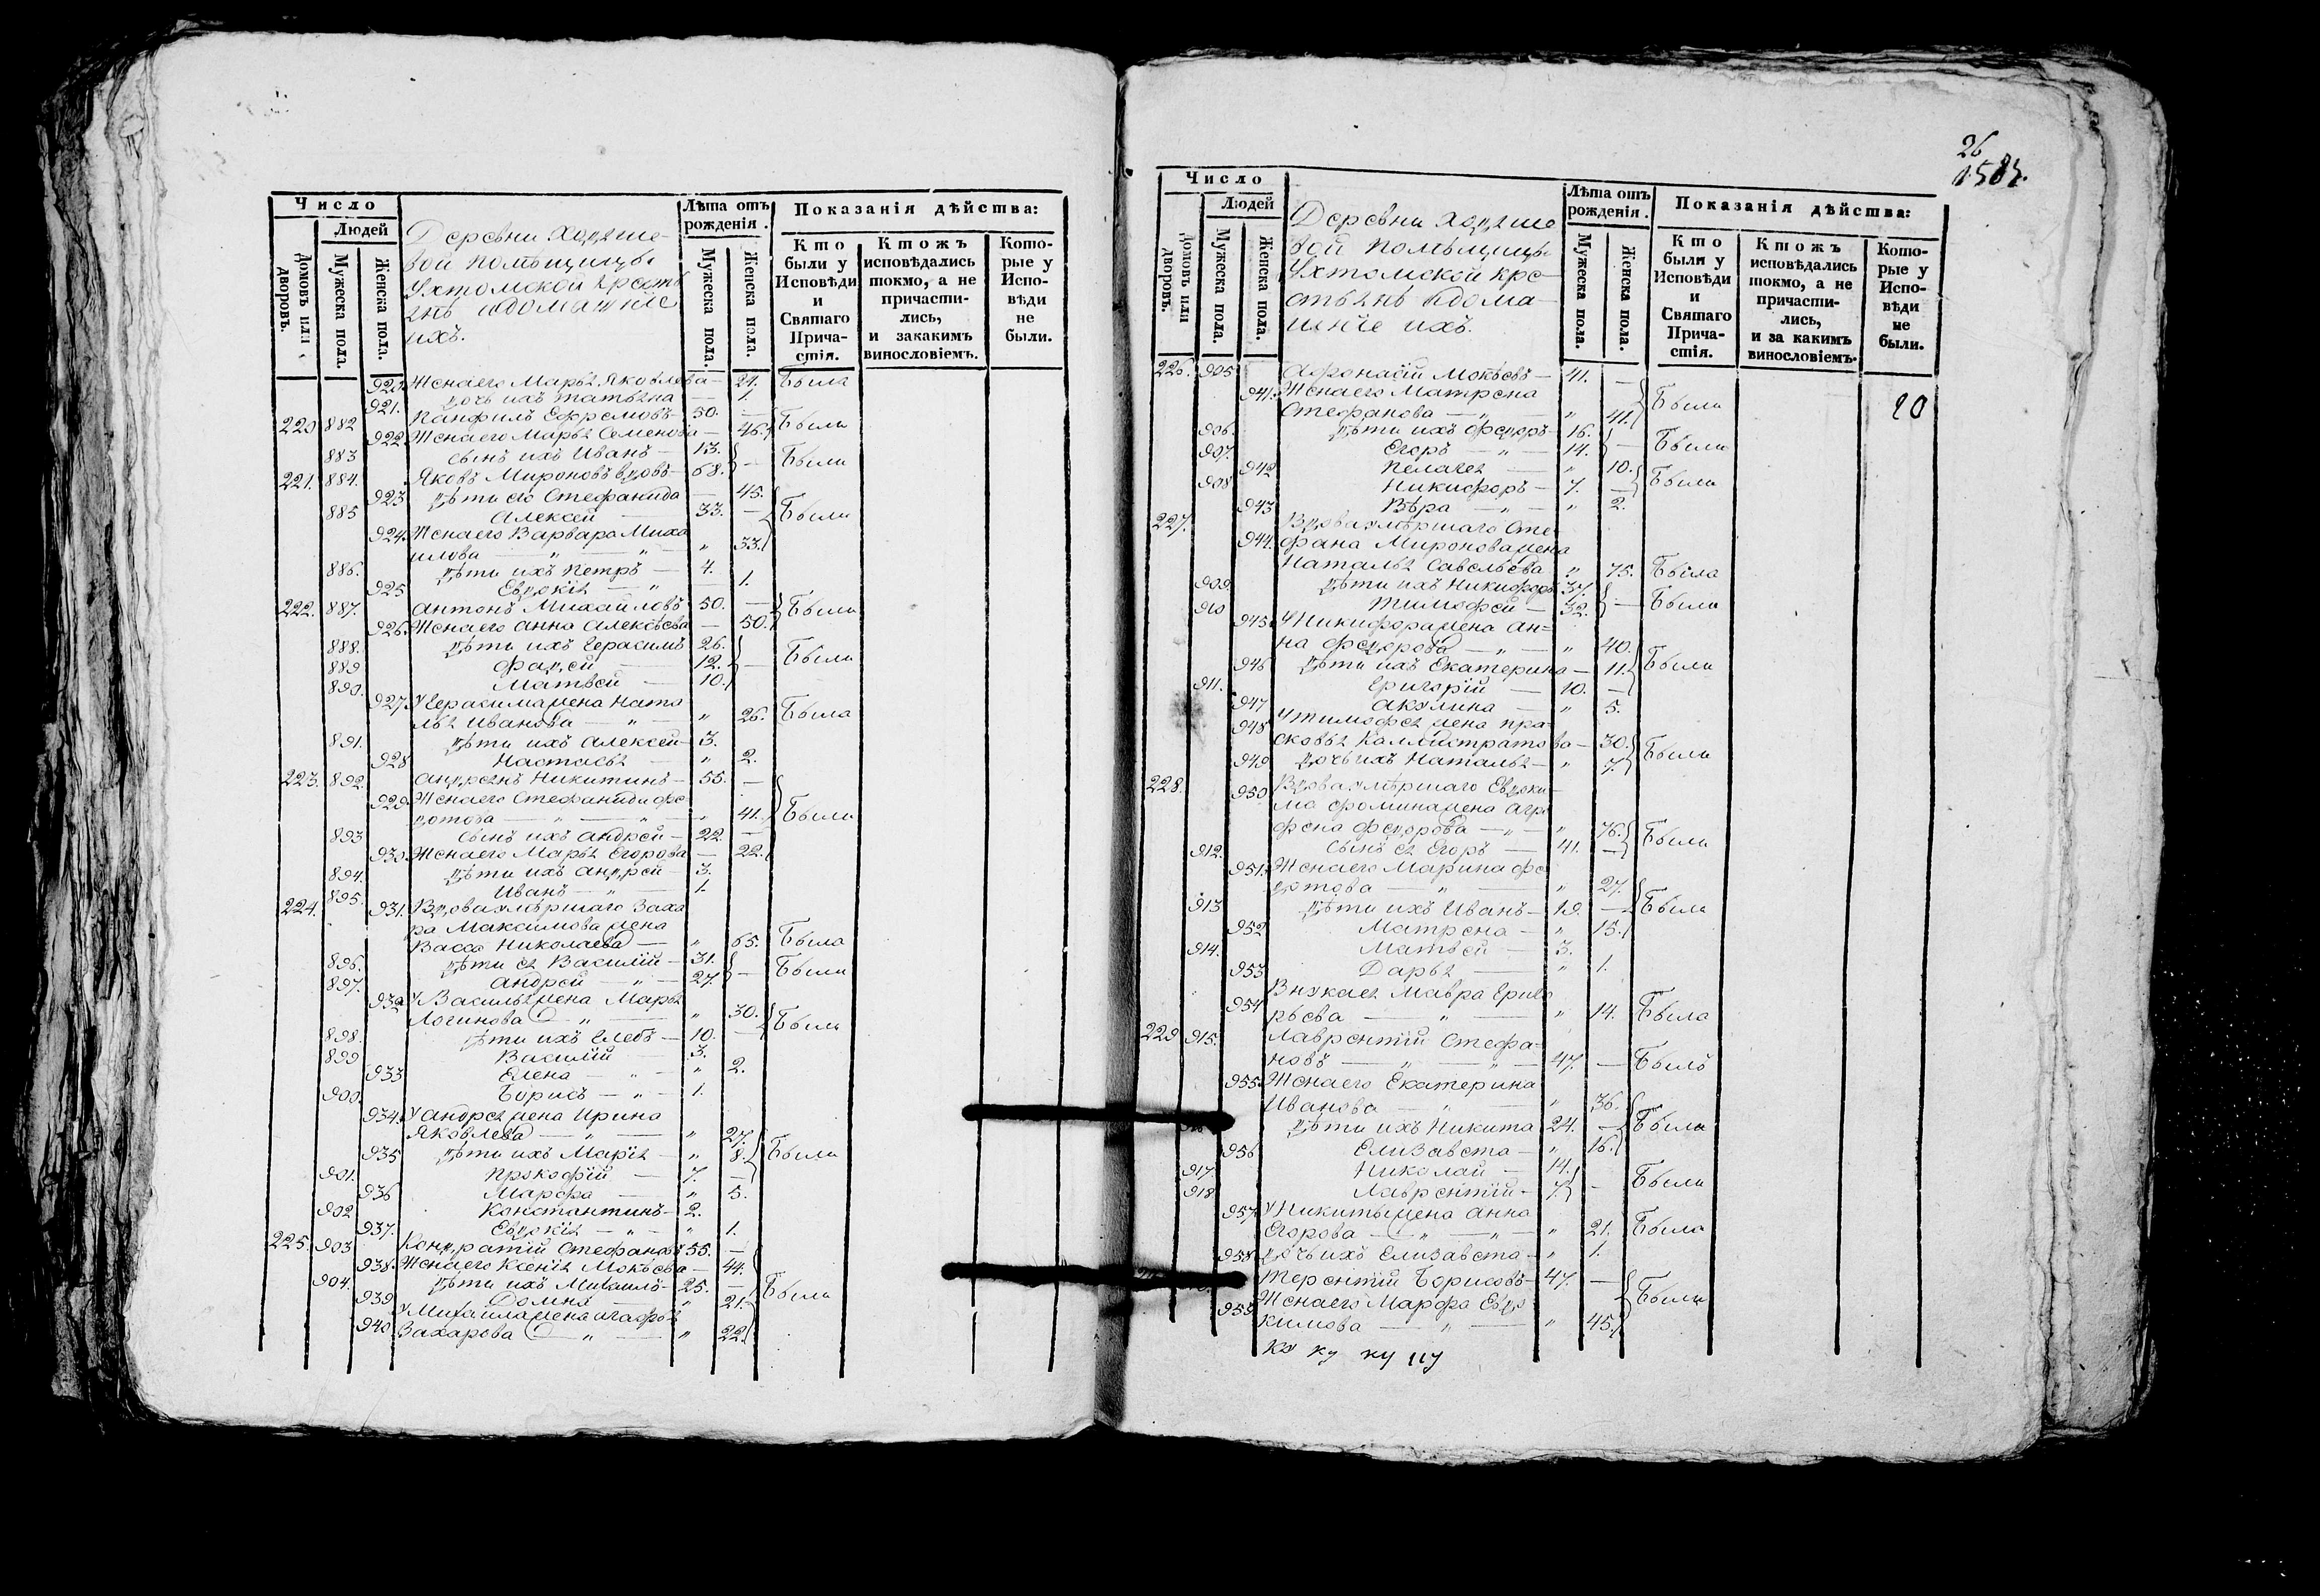 Число
Людей
Домовъ или дворовъ.
Мужеска пола.
Женска пола.
Деревни
вой помѣщицы
Ухтомской крестья
янѣ идомашніе
ихъ.
Лѣта отъ рожденія.
Мужеска пола.
Женска пола.
Показанія дѣйства:
Кто были у Исповѣди и Святаго Прича-стія.
Ктожъ исповѣдались токмо, а не причасти-лись, и закакимъ винословіемъ.
Кото-рые у Испо-вѣди не были.
920 Женаего Марья Яковлева — 21. Была
921. дочь ихъ Татьяна — 1.
220 882 Панфилъ Ефремовъ — 50. — Были
922 Женаего Марья Семенова — 46.
883 сынъ ихъ Иванъ — 13. — Были
221. 884. Яковъ Мироновъ вдовъ — 68.
923 дѣти его Стефанида — 45. Были
885 Алексей — 33. —
924. Женаего Варвара Миха
илова — " — " — " 33.
886. дѣти ихъ Петръ — 4.
925 Евдокія — " — 1.
222. 887. Антонъ Михайловъ 50. — Были
926. Женаего Анна Алексѣева — 50.
888. дѣти ихъ Герасимъ 26.
889 Фадей — 12. — Были
890. Матвей — 10.
927. У Герасима жена Ната
лья Иванова — " — " 26. Была
891. дѣти ихъ Алексей — 3.
928 Настасья — " 2.
223. 892. Андреянъ Никитинъ — 55. —
929. Женаего Стефанида Фе
дотова — " — " — " 41. Были
893 сынъ ихъ Андрей — 22. —
930. Женаего Марья Егорова — 22.
894. дѣти ихъ Андрей — 3.
895. Иванъ — " — 1.
224. 931. Вдоваумѣршаго Заха
ра Максимова жена
Васса Николаева — " 65. Была
896. дѣти ея Василій — 31.
897. Андрей — " — 27. — Были
932 У Василья жена Марья
Логинова — " — " 30. Были
898. дѣти ихъ Глебъ — 10. —
899 Василій — 3.
933 Елена — " — " 2.
900. Борисъ — " — 1.
934. У Андрея жена Ирина
Яковлева — " — " 27.
935 дѣти ихъ Марія — " 8. Были
901. Прокофій — 7. —
936 Марфа — " 5.
902 Константинъ — 2.
937. Евдокія — " — " 1.
225. 903 Кондратій Стефановъ 55. —
938. Женаего Ксенія Мокѣева — 44.
904. дѣти ихъ Михаилъ — 25. — Были
939 Домна — " 21.
У Михаила жена Агафья
940 Захарова — " — " 22.
26
1507.
20
Число
Людей
Домовъ или дворовъ.
Мужеска пола.
Женска пола.
Деревни
вой помѣщицы
Ухтомской кре
стьянъ идома
шніе ихъ.
Лѣта отъ рожденія.
Мужеска пола.
Женска пола.
Показанія дѣйства:
Кто были у Исповѣди и Святаго Прича-стія.
Ктожъ исповѣдались токмо, а не причасти-лись, и за какимъ винословіемъ.
Кото-рые у Испо-вѣди не были.
226. 905 Афонасій Мокѣевъ — 41. —
941. Женаего Матрена Были
Стефанова — " — " 41.
906. дѣти ихъ Федоръ 16.
907. Егоръ — " — 14. — Были
942 Пелагея — " 10.
908 Никифоръ — 7. — Были
943 Вѣра — " — " 2.
227. Вдоваумѣршаго Сте
944. фана Миронова жена
Наталья Савельева " 75. Была
909. дѣти ихъ Никифоръ 37.
910 Тимофей — 32. — Были
945. У Никифора жена Ан=
на Федорова — " — " 40.
946 дѣти ихъ Екатерина — 11. Были
911. Григорій — 10. —
947 Акулина — " 5.
948 У Тимофея жена Пра-
сковья Каллистратова — 30. Были
949 дочь ихъ Наталья — " 7.
228. 950 Вдоваумѣршаго Евдоки-
ма Фомина жена Агра
фена Федорова — " — " 76. Были
912. сынъ ея Егоръ — 41. —
951. Женаего Марина Фе
дотова — " — " 27.
913 дѣти ихъ Иванъ — 19. — Были
952 Матрена — " 15.
914. Матвей — 3.
953 Дарья — " 1.
Внукаея Мавра Григо
954 рьева — " — " 14. Была
229 915. Лаврентій Стефа-
новъ — " — " — 47. — Былъ
955. Женаего Екатерина
Иванова — " — " 36.
дѣти ихъ Никита 24. — Были
956 Елизавета — " 16.
917. Николай — 14.
918 Лаврентій — 7. — Были
957. У Никиты жена Анна
Егорова — " — " — " 21. Была
958. дочь ихъ Елизавета — " 1.
Терентій Борисовъ — 47. —
959. Женаего Марфа Евдо Были
кимова — " — " 45.